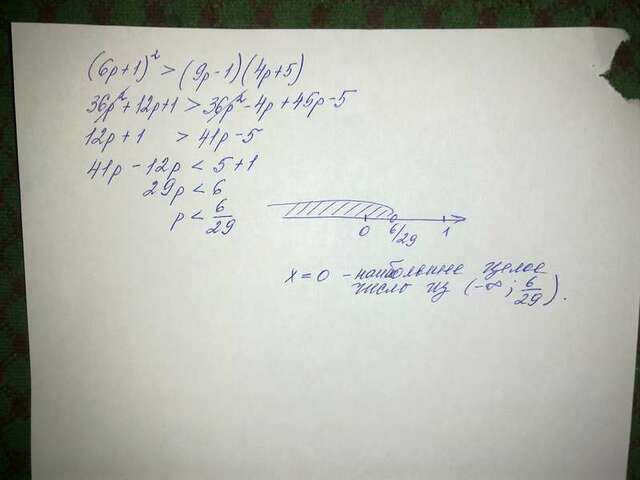 (6p+1)² > (9p-1)(4p+5)
36p²+12p+1 > 36p²-4p+45p-5
12p+1 > 41p-5
41p-12p < 5+1
29p < 6
p < 6/29
0 6/29 1
x=0 - наибольшее целое
число из (-∞; 6/29).